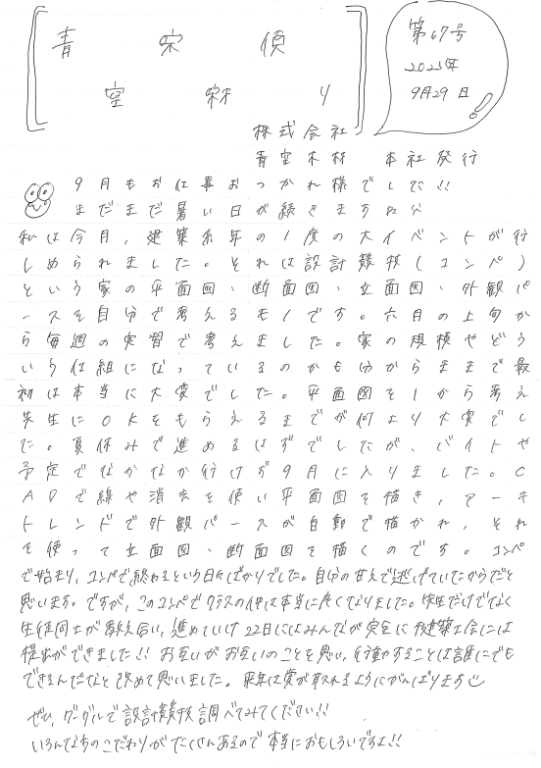 青空家材便り
第67号
2023年
9月29日
株式会社
青空木材 本社発行
9月もお仕事おつかれ様でした!!
まだまだ暑い日が続きますね
私は今月、建築系年の1度の大イベントが行
しめられました。それは設計競技(コンペ)
という家の平面図、断面図、立面図、外観パ
ースを自分で考えるモノです。六月の上旬か
ら毎週の実習で考えました。家の規模やどう
いう仕組になっているのかも分からままで最
初は本当に大変でした。平面図を1から考え
先生にOKをもらえるまでが何より大変でし
た。夏休みで進めるはずでしたが、バイトや
予定でなかなか行けず9月に入りました。C
ADで線や消去を使い平面図を描き、アーキ
トレンドで外観パースが自動で描かれ、それ
を使って立面図、断面図を描くのです。コンペ
で始まり、コンペで終わるという日々ばかりでした。自分の甘えで逃げていたからだと
思います。ですが、このコンペでクラスの仲は本当に良くなりました。先生だけでなく
生徒同士が教え合い、進めていけ22日にはみんなが完全に建築士会には
提出ができました!! お互いがお互いのことを思い、行動することは誰にでも
できるんだなと改めて思いました。来年は賞が取れるようにがんばります
ぜひ、グーグルで設計競技調べてみてください!!
いろんな方のこだわりがたくさんあるので本当におもしろいですよ!!